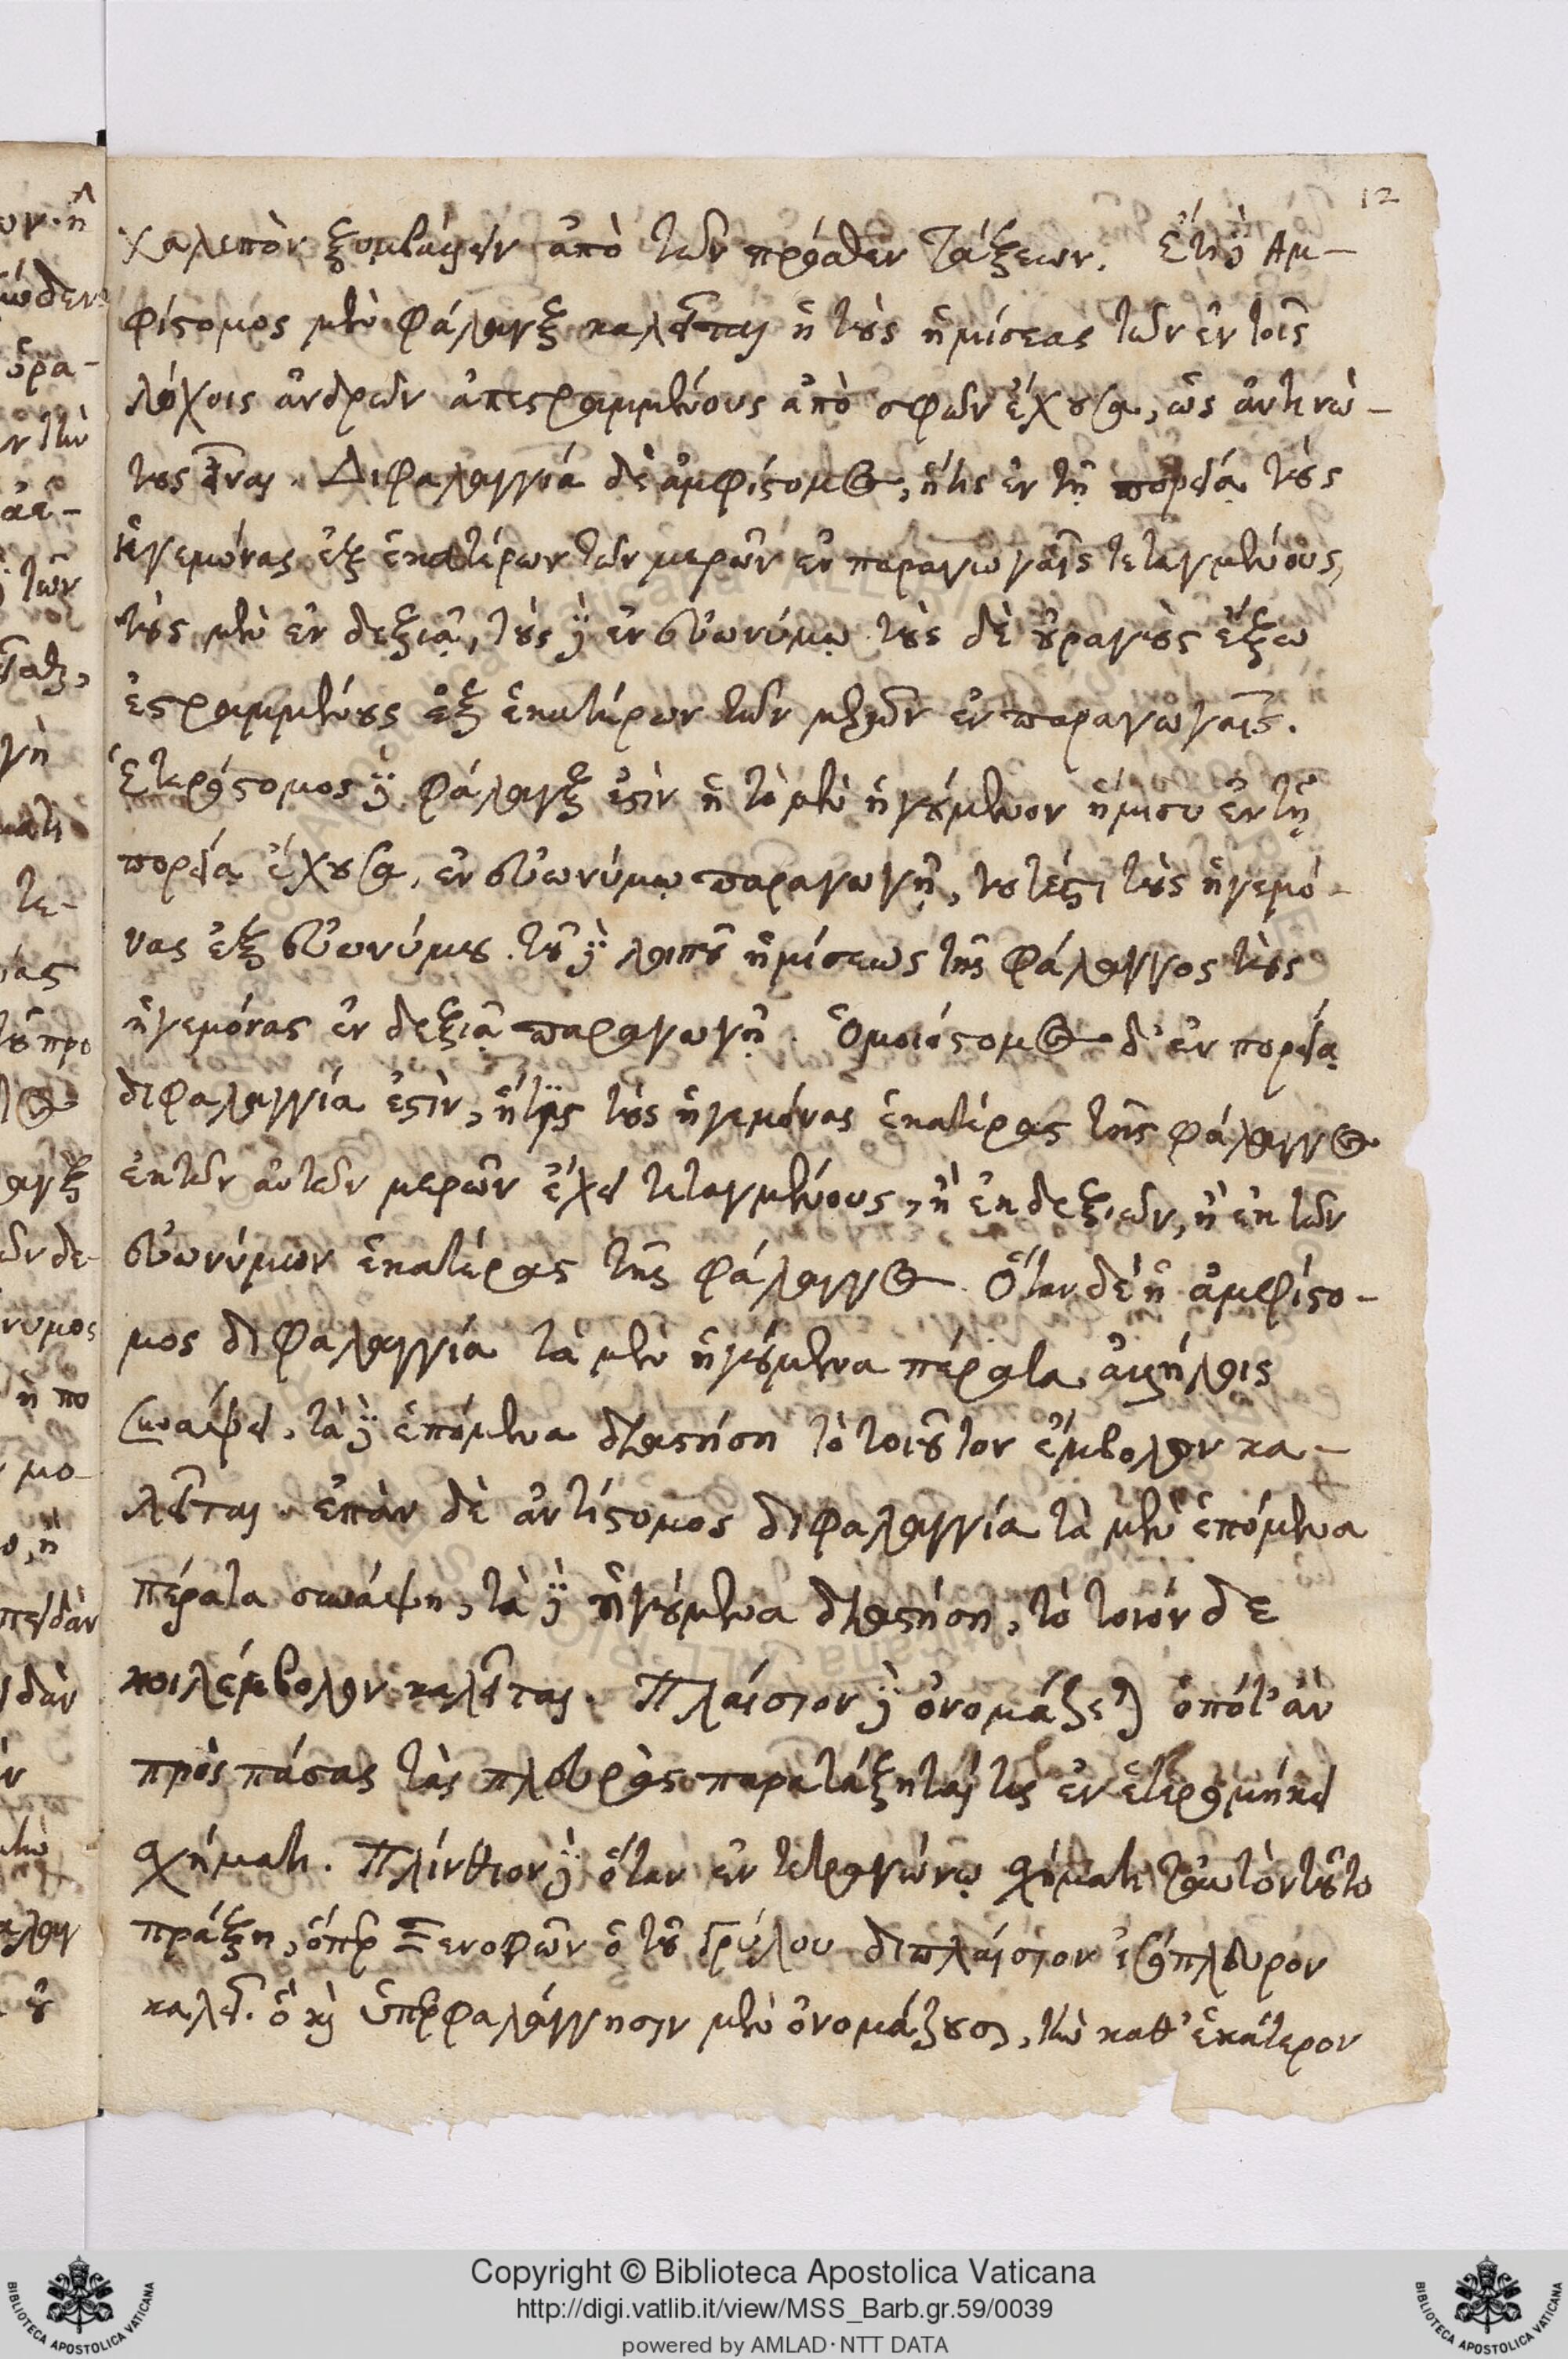 12
χαλεπὸν ξυμβάψειν ἀπὸ τῶν πρόσθεν τάξεων. Ἔτι δὲ Ἀμ-
φίστομος μὲν φάλαγξ καλεῖται ἡ τοὺς ἡμίσεας τῶν ἐν τοῖς
λόχοις ἀνδρῶν ἀπεστραμμένους ἀπὸ σφῶν ἔχουσα, ὡς ἀντινώ-
τους εἶναι. Διφαλαγγία δὲ ἀμφίστομος, ἥτις ἐν τῇ πορείᾳ τοὺς
ἡγεμόνας ἐξ ἑκατέρων τῶν μερῶν ἐν παραγωγαῖς τεταγμένους,
τοὺς μὲν ἐν δεξιᾷ, τοὺς δὲ ἐν εὐωνύμῳ τοὺς δὲ οὐραγοὺς ἔξω
ἐστραμμένους ἐξ ἑκατέρων τῶν μερῶν ἐν παραγωγαῖς.
Ἑτερόστομος δὲ φάλαγξ ἐστὶν ἡ τὸ μὲν ἡγούμενον ἥμισυ ἐν τῇ
πορείᾳ ἔχουσα, ἐν εὐωνύμῳ παραγωγῇ, τουτέστι τοὺς ἡγεμό-
νας ἐξ εὐωνύμου. τοῦ δὲ λοιποῦ ἡμίσεως τῆς φάλαγγος τοὺς
ἡγεμόνας ἐν δεξιᾷ παραγωγῇ. Ὁμοιόστομος δ' ἐν πορείᾳ
διφαλαγγία ἐστὶν, ἥτις τοὺς ἡγεμόνας ἑκατέρας τῆς φάλαγγος
ἐκ τῶν αὐτῶν μερῶν ἔχει τεταγμένους, ἢ ἐκ δεξιῶν, ἢ ἐκ τῶν
εὐωνύμων ἑκατέρας τῆς φάλαγγος. Ὅταν δὲ ἡ ἀμφίστο-
μος διφαλαγγία τὰ μὲν ἡγούμενα πέρατα ἀλλήλοις
συνάψει, τὰ δὲ ἑπόμενα διαστήσῃ τὸ τοιοῦτον ἔμβολον κα-
λεῖται. ἐπὰν δὲ ἀντίστομος διφαλαγγία τὰ μὲν ἑπόμενα
πέρατα συνάψῃ, τὰ δὲ ἡγούμενα διαστήσῃ, τὸ τοιόνδε
κοιλέμβολον καλεῖται. Πλαίσιον δὲ ὀνομάζεται ὁπότ' ἂν
πρὸς πάσας τὰς πλευρὰς παρατάξηταί τις ἐν ἑτερομήκει
σχήματι. Πλίνθιον δὲ ὅταν ἐν τετραγώνῳ σχήματι ταὐτὸν τοῦτο
πράξῃ, ὅπερ Ξενοφῶν ὁ τοῦ Γρύλου διπλαίσιον ἰσόπλευρον
καλεῖ. ὃ καὶ ὑπερφαλάγγησιν μὲν ὀνομάζουσι, τὴν καθ' ἑκάτερον
Copyright © Biblioteca Apostolica Vaticana
http://digi.vatlib.it/view/MSS_Barb.gr.59/0039
powered by AMLAD·NTT DATA